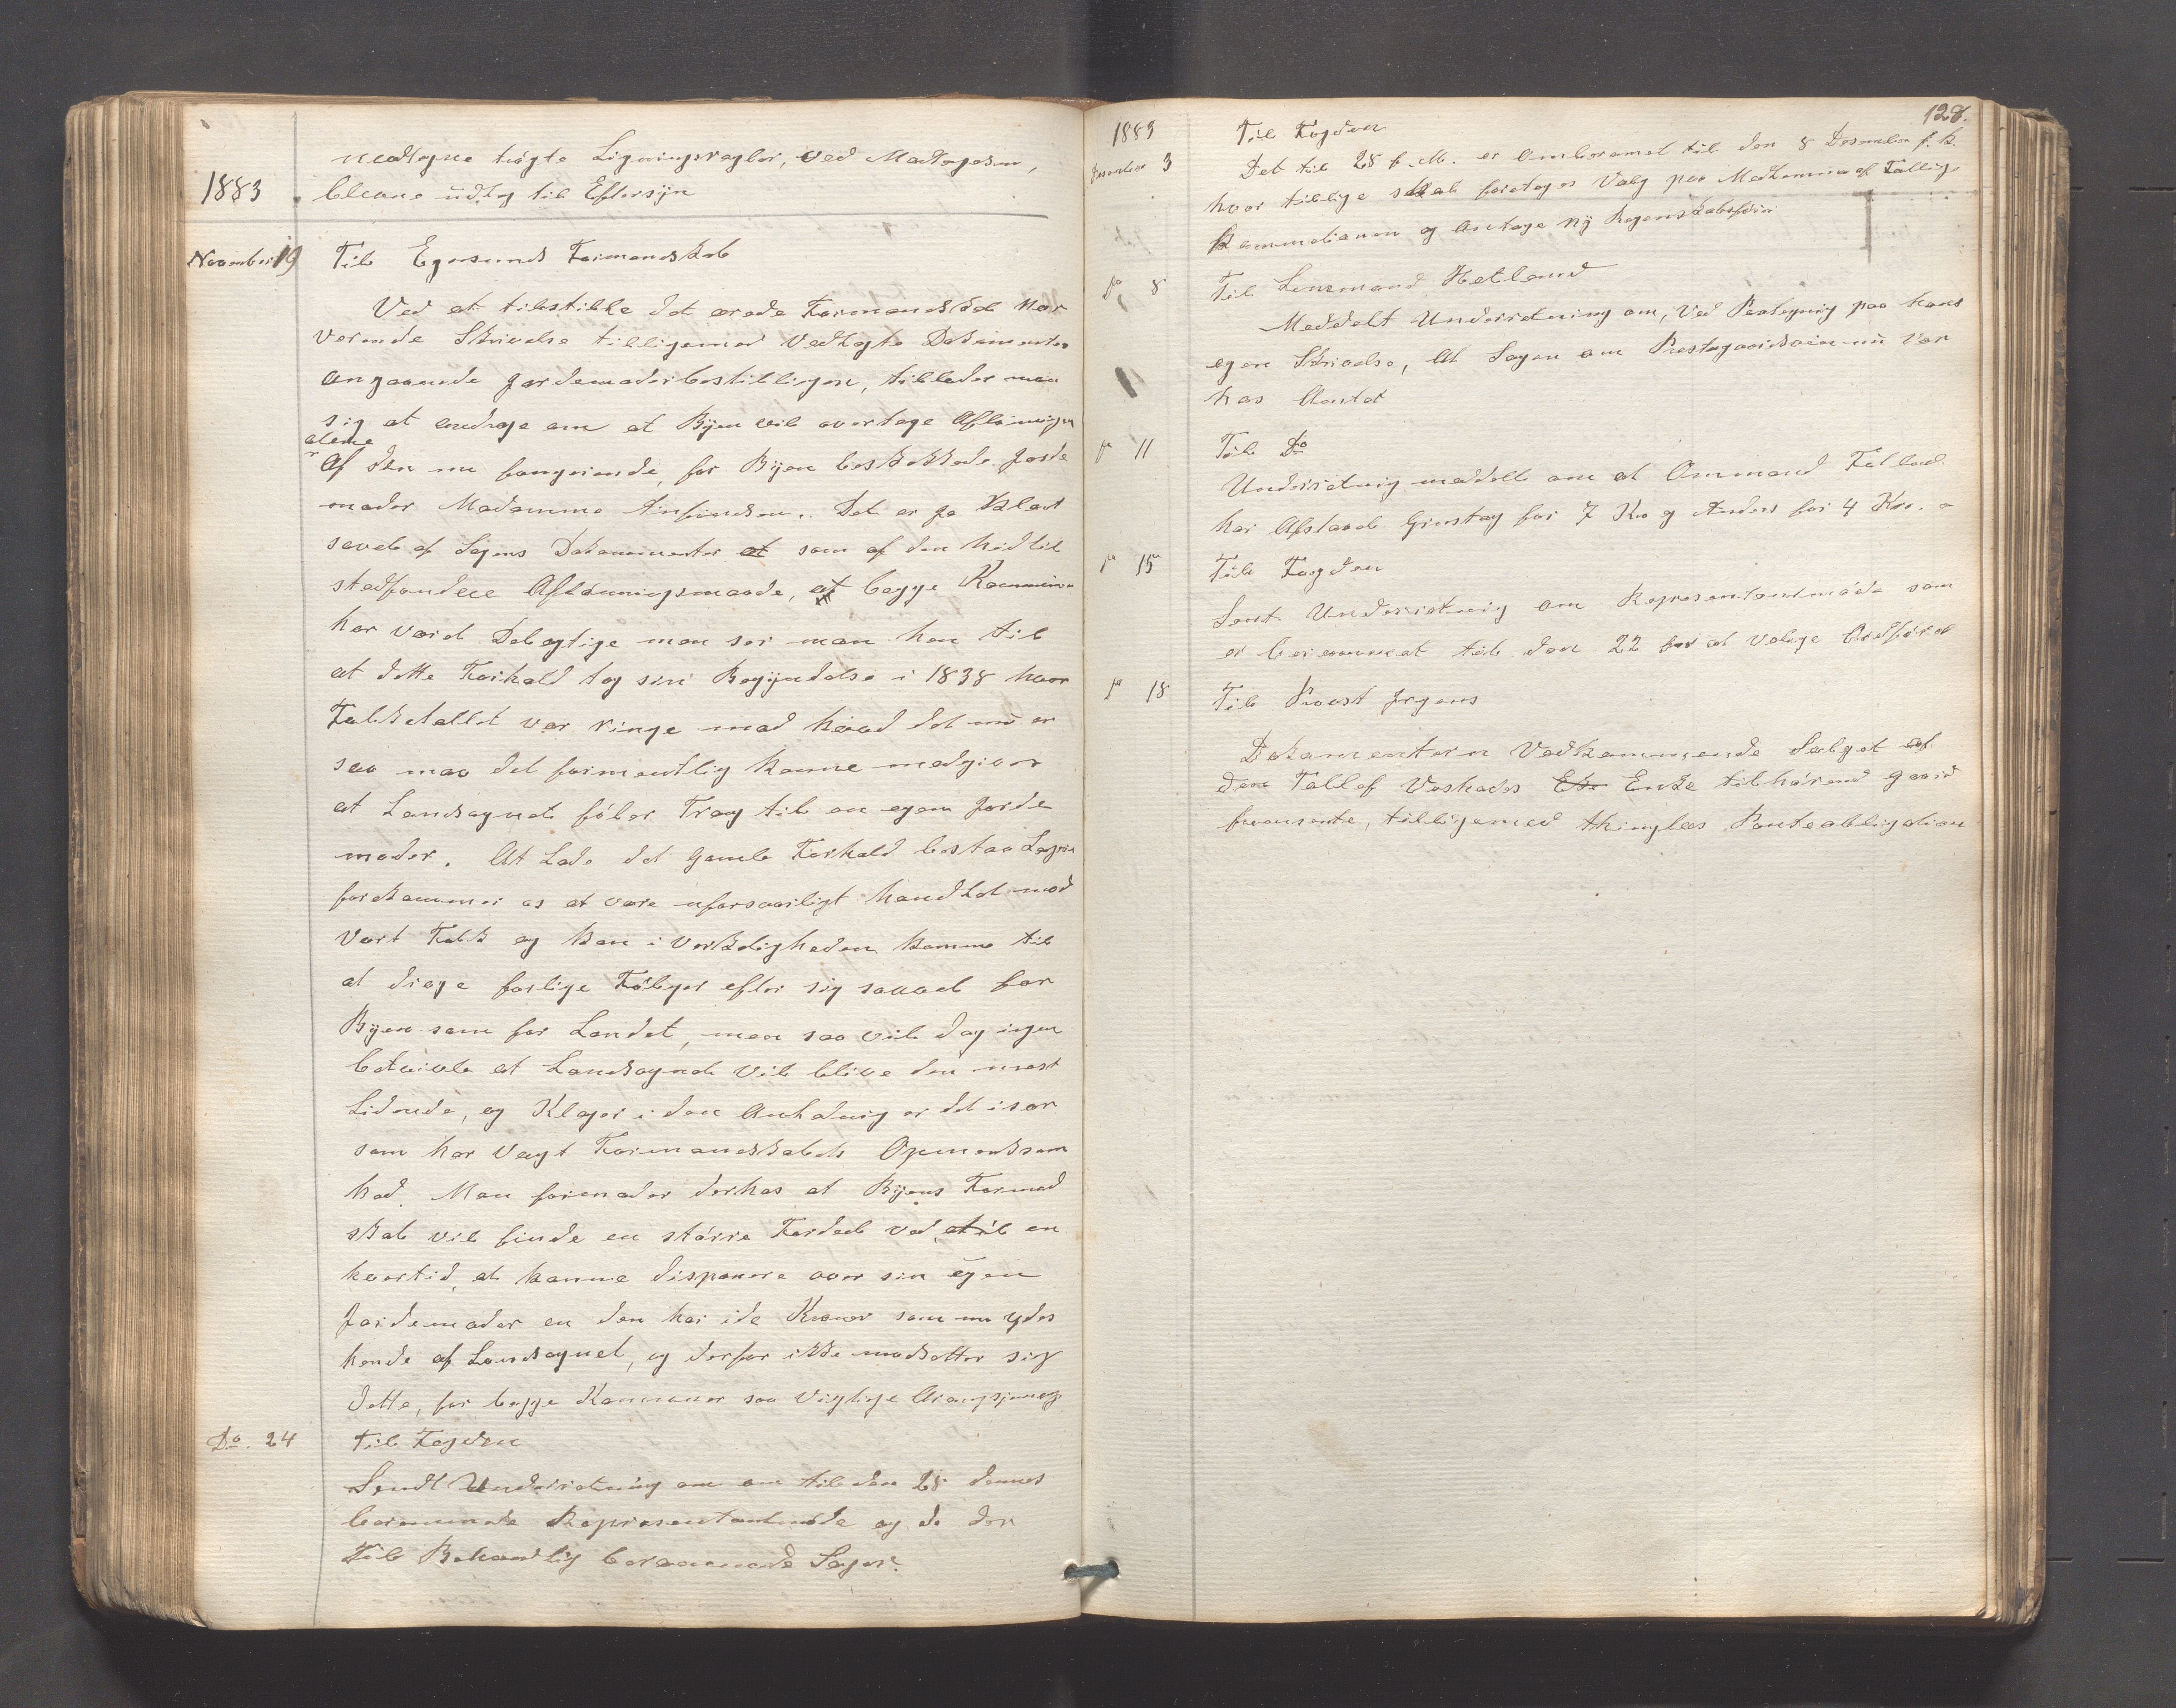 1883
vedtagne trÿgte Ligningsregler, ved Modtagelsen,
bleve üdtag til Eftersÿn
November 19
Til Egersunds Formandskab
Ved at tilstille det ærede Formandskab nær
værende Skrivelse tilligemed Vedlagte Dokumenter
angaaende Jordemoderbestillingen, tillader man
sig at andrage om at Bÿen vil overtage Aflønningen
alene
af den nu fungerende, for Bÿen beskikkede Jorde
moder Madamme Anfindsen. Det er jo klart
savel af Sagens Dokummenter at som af den hidtil
stedfundene Aflønningsmaade, at begge Kommuner
har vært Delagtige men ser man hen til
at dette Forhold tog sin Begÿndelse i 1838 hvor
Folketallet var ringe mod hvad det nü er
saa maa det formentlig kunne medgives
at Landsognet føler Trang til en egen Jorde
moder. At Lade det gamle Forhold bestaa Længer
forekommer os at være uforsvarligt handlet mod
Vort Folk og kan i Verkeligheden komme til
at drage farlige Følger efter sig saavel for
Bÿen som for Landet, men saa vil dog ingen
betvivle at Landsognet vil blive den mest
Lidende, og Klager i den Anledning er det især
som har Vagt Formandskabets Opmerksom
hed. Man formoder derhos at Bÿens Formand
skab vil finde en større Fordel ved, til en
hvertid, at kunne disponere over sin egen
Jordemoder en den har i de Kroner som nu ydes
hende af Landsognet, og derfor ikke modsætter sig
dette, for begge Kommuner saa Vigtige Arangsjement
Do. 24
Til Fogden
Sendt Underretning om om til den 28 dennes
berammede Representantmøde og de der
til Behandlig berammede Sager.
128.
1883
Desember 3
Til Fogden
Det til 28 f. M. er Omberamet til den 8 Desember f. k.
hvor tillige skal foretages Valg paa Medlemmer af Fattig
Kommisionen og Antage nÿ Regenskabsfører
Do 8
Til Lensmand Hetland
Meddelt Underretning om, Ved Paategnig paa hans
egen Skrivelse, At Sagen om Prestegaardsveien nü Var
has Amtet
Do 11
Til Do
Underretnig meddelt om at Ommund
har Afstaaet Grustag for 7 Kr og Anders for 4 Kro.
Do 15
Til Fogden
Sent Underretnig om Representantmøde som
er berammet til den 22 for at Velge Ordfører
Do 18
Til Provst Jrgens
Dokumenterne Vedkommende Salget af
den Tollef Veshodes Enke tilhørend Gaard
, tilligemed thinglæs Panteobligation